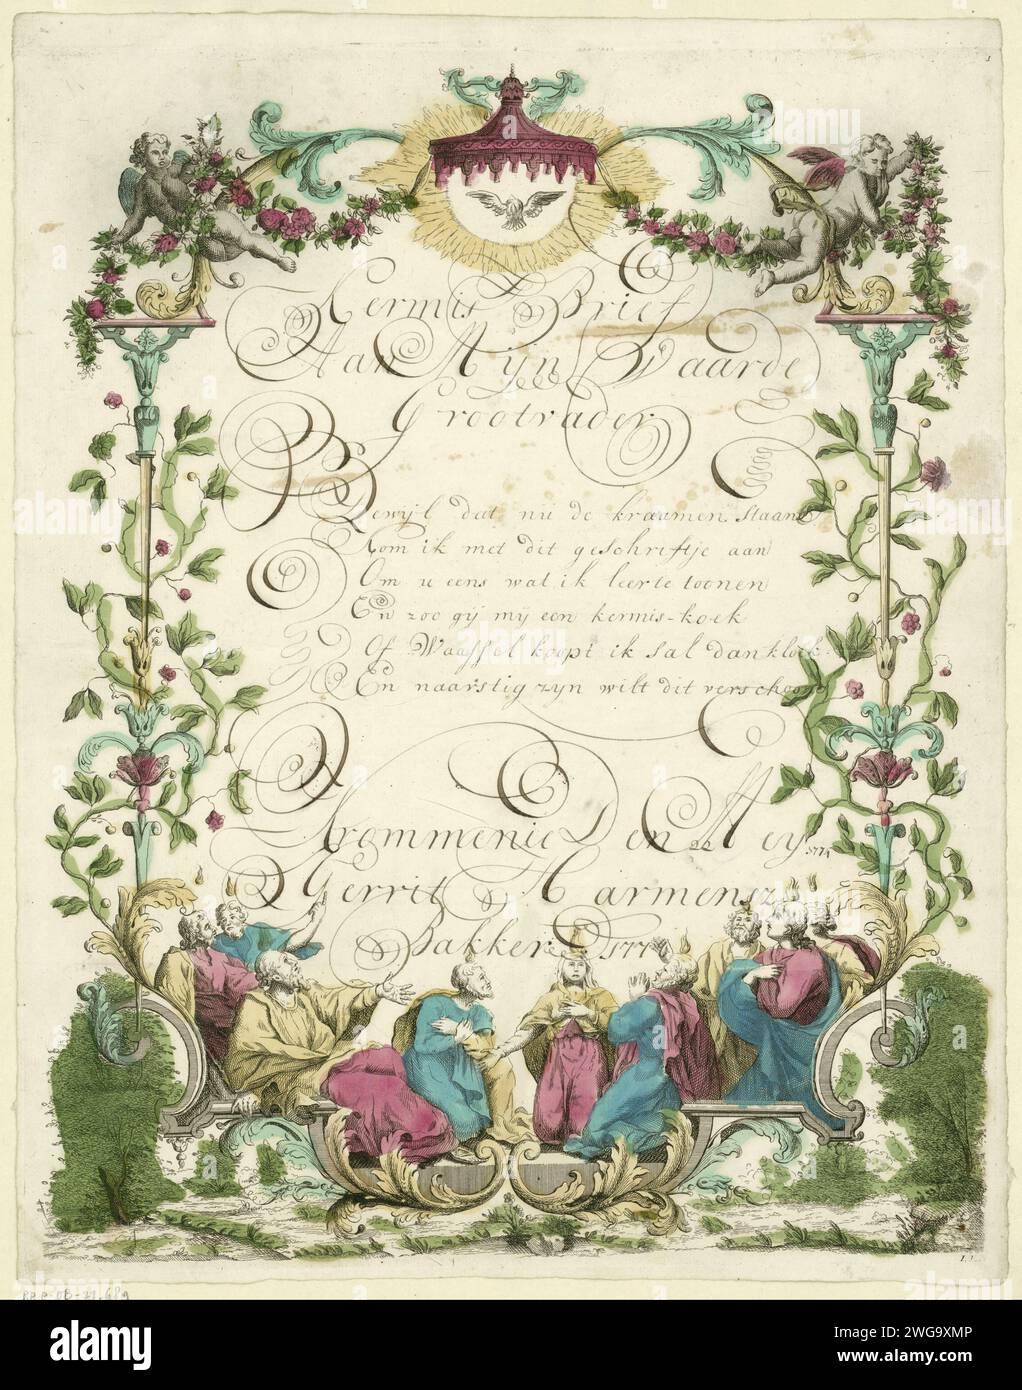 Kermis Brief
Aan Mijn Waarde
Grootvader
Dewijl dat nu de kraamen staan
Kom ik met dit geschriftje aan
Om u eens wat ik leerte toonen
En zoo gij mij een kermis-koek
Of Waaffel koopt ik sal dan kloek
En naarstig zyn wilt dit verschoone
Krommenie Den 22 Mey 1771
Gerrit Harmensz
Bakker 1771
alamy
Image ID: 2WG9XMP
www.alamy.com